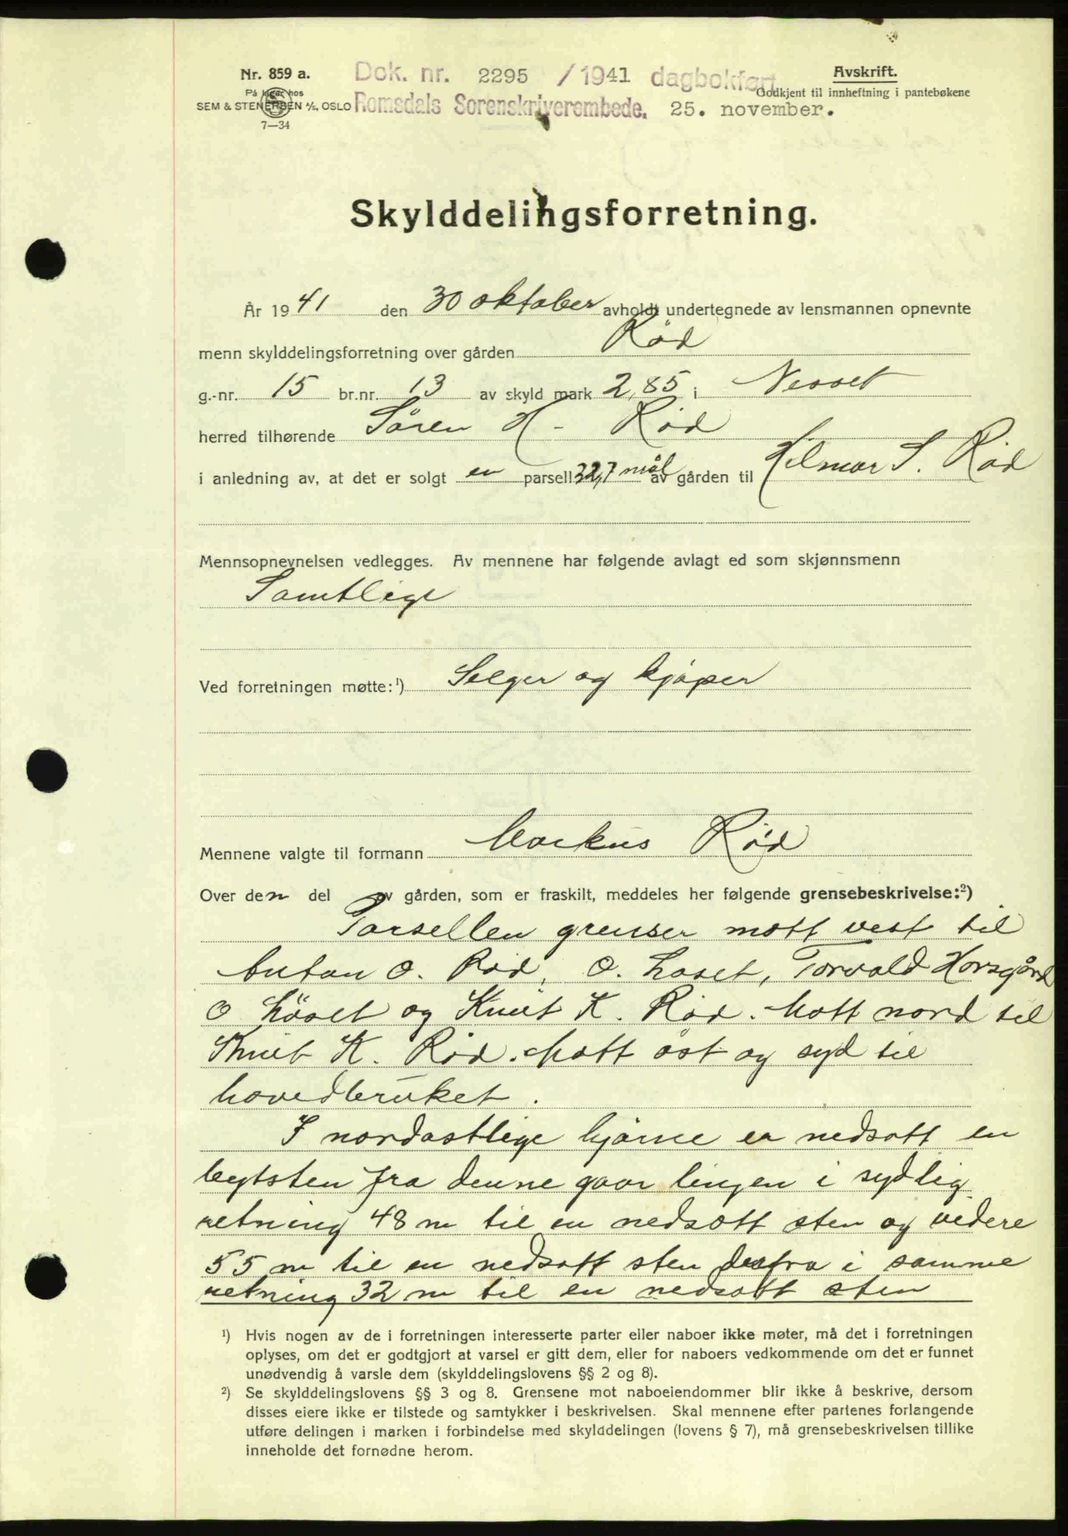 Nr. 859 a.
På lager hos
SEM & STENERSEN A/S, OSLO
7—34
Dok. nr. 2295 / 1941 dagbokført
Romsdals Sorenskriverembede. 25. november.
Avskrift.
Godkjent til innheftning i pantebøkene
Skylddelingsforretning.
År 1941 den 30 oktober avholdt undertegnede av lensmannen opnevnte
menn skylddelingsforretning over gården Rød
g.-nr. 15 br.nr. 13 av skyld mark 2,85 i Nesset
herred tilhørende Søren H. Rød
i anledning av, at det er solgt en parsell 32,7 mål av gården til Hilmar S. Rød
Mennsopnevnelsen vedlegges. Av mennene har følgende avlagt ed som skjønnsmenn
Samtlige
Ved forretningen møtte:¹) Selger og kjøper
Mennene valgte til formann Markus Rød
Over den del av gården, som er fraskilt, meddeles her følgende grensebeskrivelse:²)
Parsellen grenser mott vest til
Anton O. Rød, O. Løset, Torvald Horsgård
O Løset og Knut K. Rød. Mott nord til
Knut K. Rød. Mott øst og syd til
hovedbruket.
I nordøstlige hjørne er nedsatt en
bytsten fra denne gaar linjen i sydlig
retning 48 m til en nedsatt sten og videre
55 m til en nedsatt sten derfra i samme
retning 32 m til en nedsatt sten
¹) Hvis nogen av de i forretningen interesserte parter eller naboer ikke møter, må det i forretningen
oplyses, om det er godtgjort at varsel er gitt dem, eller for naboers vedkommende om det er funnet
unødvendig å varsle dem (skylddelingslovens §§ 2 og 8).
²) Se skylddelingslovens §§ 3 og 8. Grensene mot naboeiendommer blir ikke å beskrive, dersom
disses eiere ikke er tilstede og samtykker i beskrivelsen. Skal mennene efter partenes forlangende
utføre delingen i marken i forbindelse med skylddelingen (lovens § 7), må grensebeskrivelsen tillike
inneholde det fornødne herom.